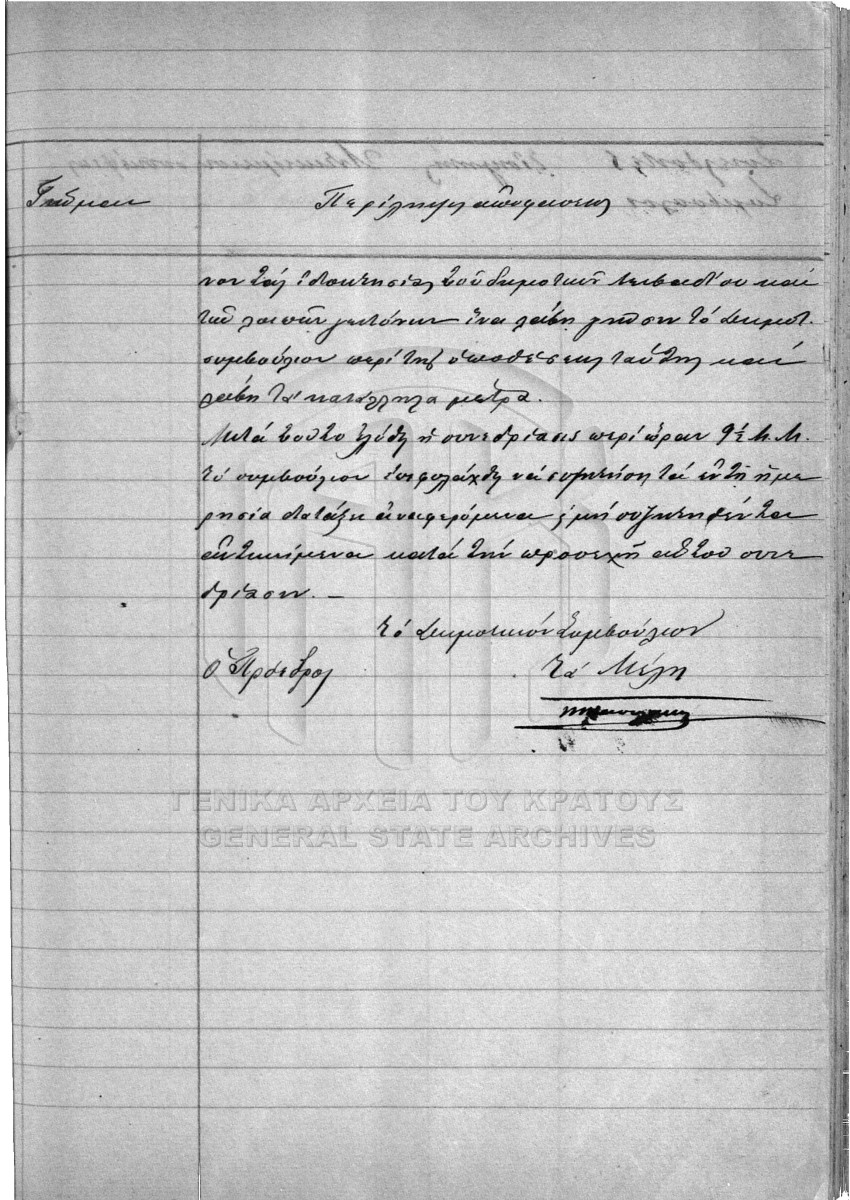 Περίληψις αποφάσεως
νον τας ιδιοκτησίας του δημοτικού και
των λοιπών γειτόνων ίνα λάβη γνώσιν το Δημοτ.
συμβούλιον περί της υποθέσεως ταύτης και
λάβη τα κατάλληλα μέτρα.
Μετά τούτο ελύθη η συνεδρίασις περί ώραν 9½ Μ.Μ.
το συμβούλιον επεφυλάχθη να συζητήση τα εν τη ημε
ρησία διατάξει αναφερόμενα μη συζητηθέντα
αντικείμενα κατά την προσεχή αυτού συνε
δρίασιν. —
Το Δημοτικόν Συμβούλιον
Ο Πρόεδρος Τα Μέλη
ΓΕΝΙΚΑ ΑΡΧΕΙΑ ΤΟΥ ΚΡΑΤΟΥΣ
GENERAL STATE ARCHIVES